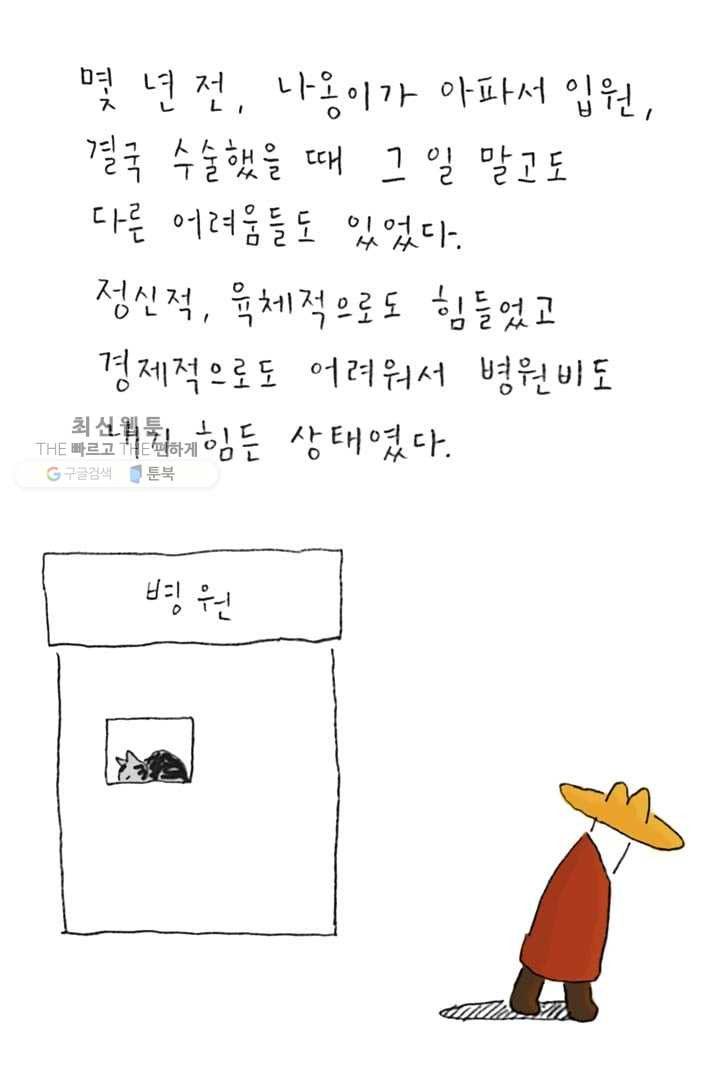 몇 년 전, 나옹이가 아파서 입원,
결국 수술했을 때 그 일 말고도
다른 어려움들도 있었다.
정신적, 육체적으로도 힘들었고
경제적으로도 어려워서 병원비도
힘든 상태였다.
최신웹툰
THE 빠르고 THE 편하게
구글검색 툰북
병원